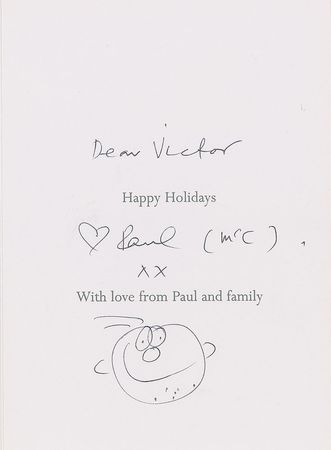 Dear Victor
Happy Holidays
♡ Paul (McC).
xx
With love from Paul and family